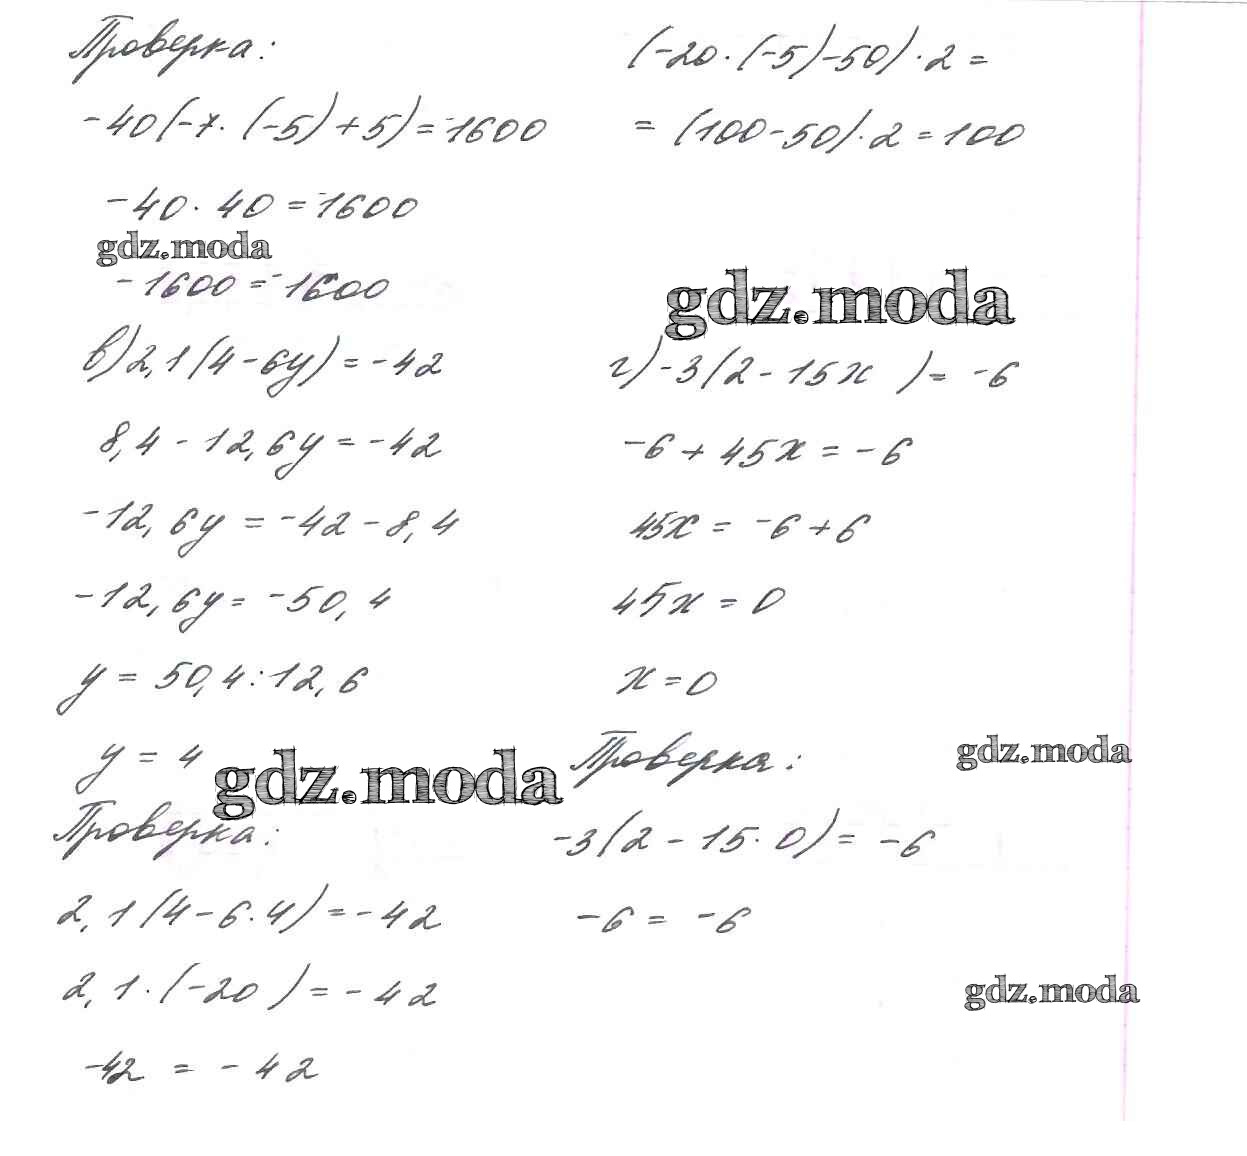 Проверка:
-40(-7·(-5)+5)=-1600
-40·40=-1600
gdz.moda
-1600=-1600
в)2,1(4-6y)=-42
8,4-12,6y=-42
-12,6y=-42-8,4
-12,6y=-50,4
y=50,4:12,6
y=4
gdz.moda
Проверка:
2,1(4-6·4)=-42
2,1·(-20)=-42
-42=-42
(-20·(-5)-50)·2=
=(100-50)·2=100
gdz.moda
г)-3(2-15x)=-6
-6+45x=-6
45x=-6+6
45x=0
x=0
Проверка:
gdz.moda
-3(2-15·0)=-6
-6=-6
gdz.moda